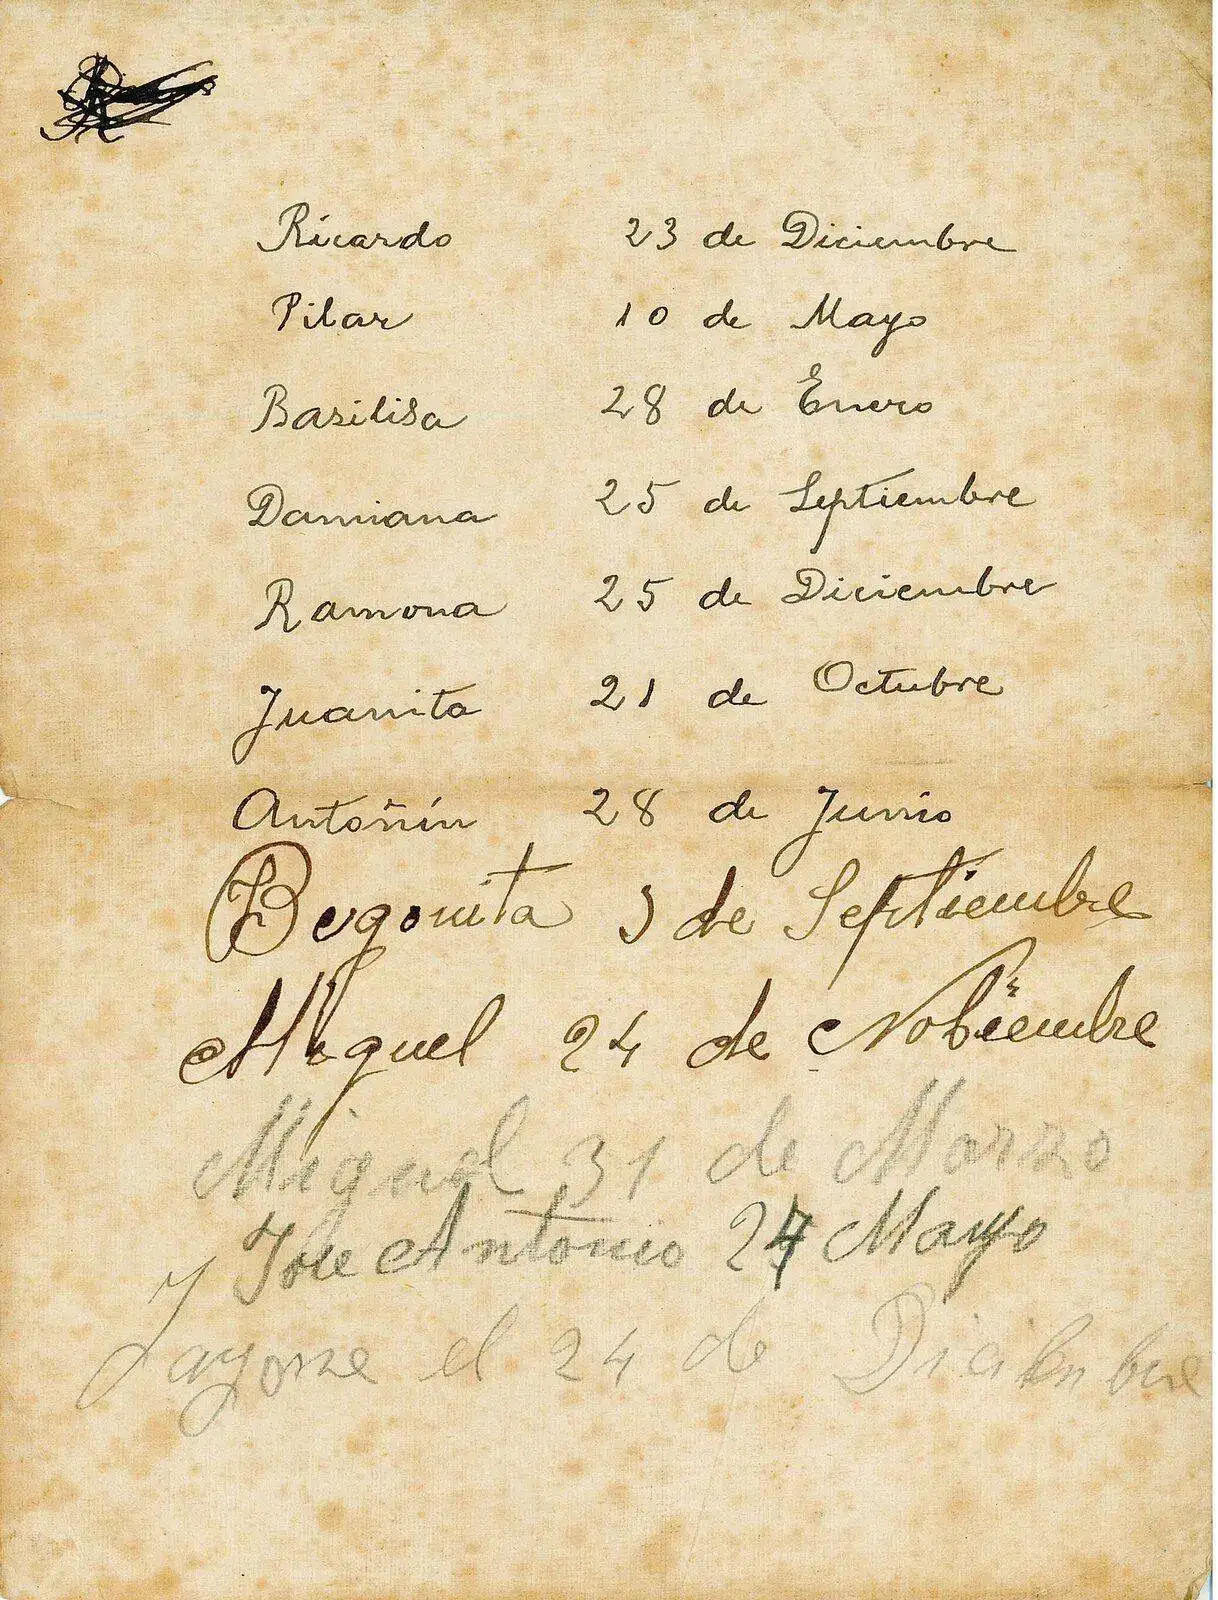 Ricardo 23 de Diciembre
Pilar 10 de Mayo
Basilisa 28 de Enero
Damiana 25 de Septiembre
Ramona 25 de Diciembre
Juanita 21 de Octubre
Antoñín 28 de Junio
Begonita 3 de Septiembre
Miguel 24 de Nobiembre
Miguel 31 de Marzo
Jose Antonio 27 Mayo
el 24 de